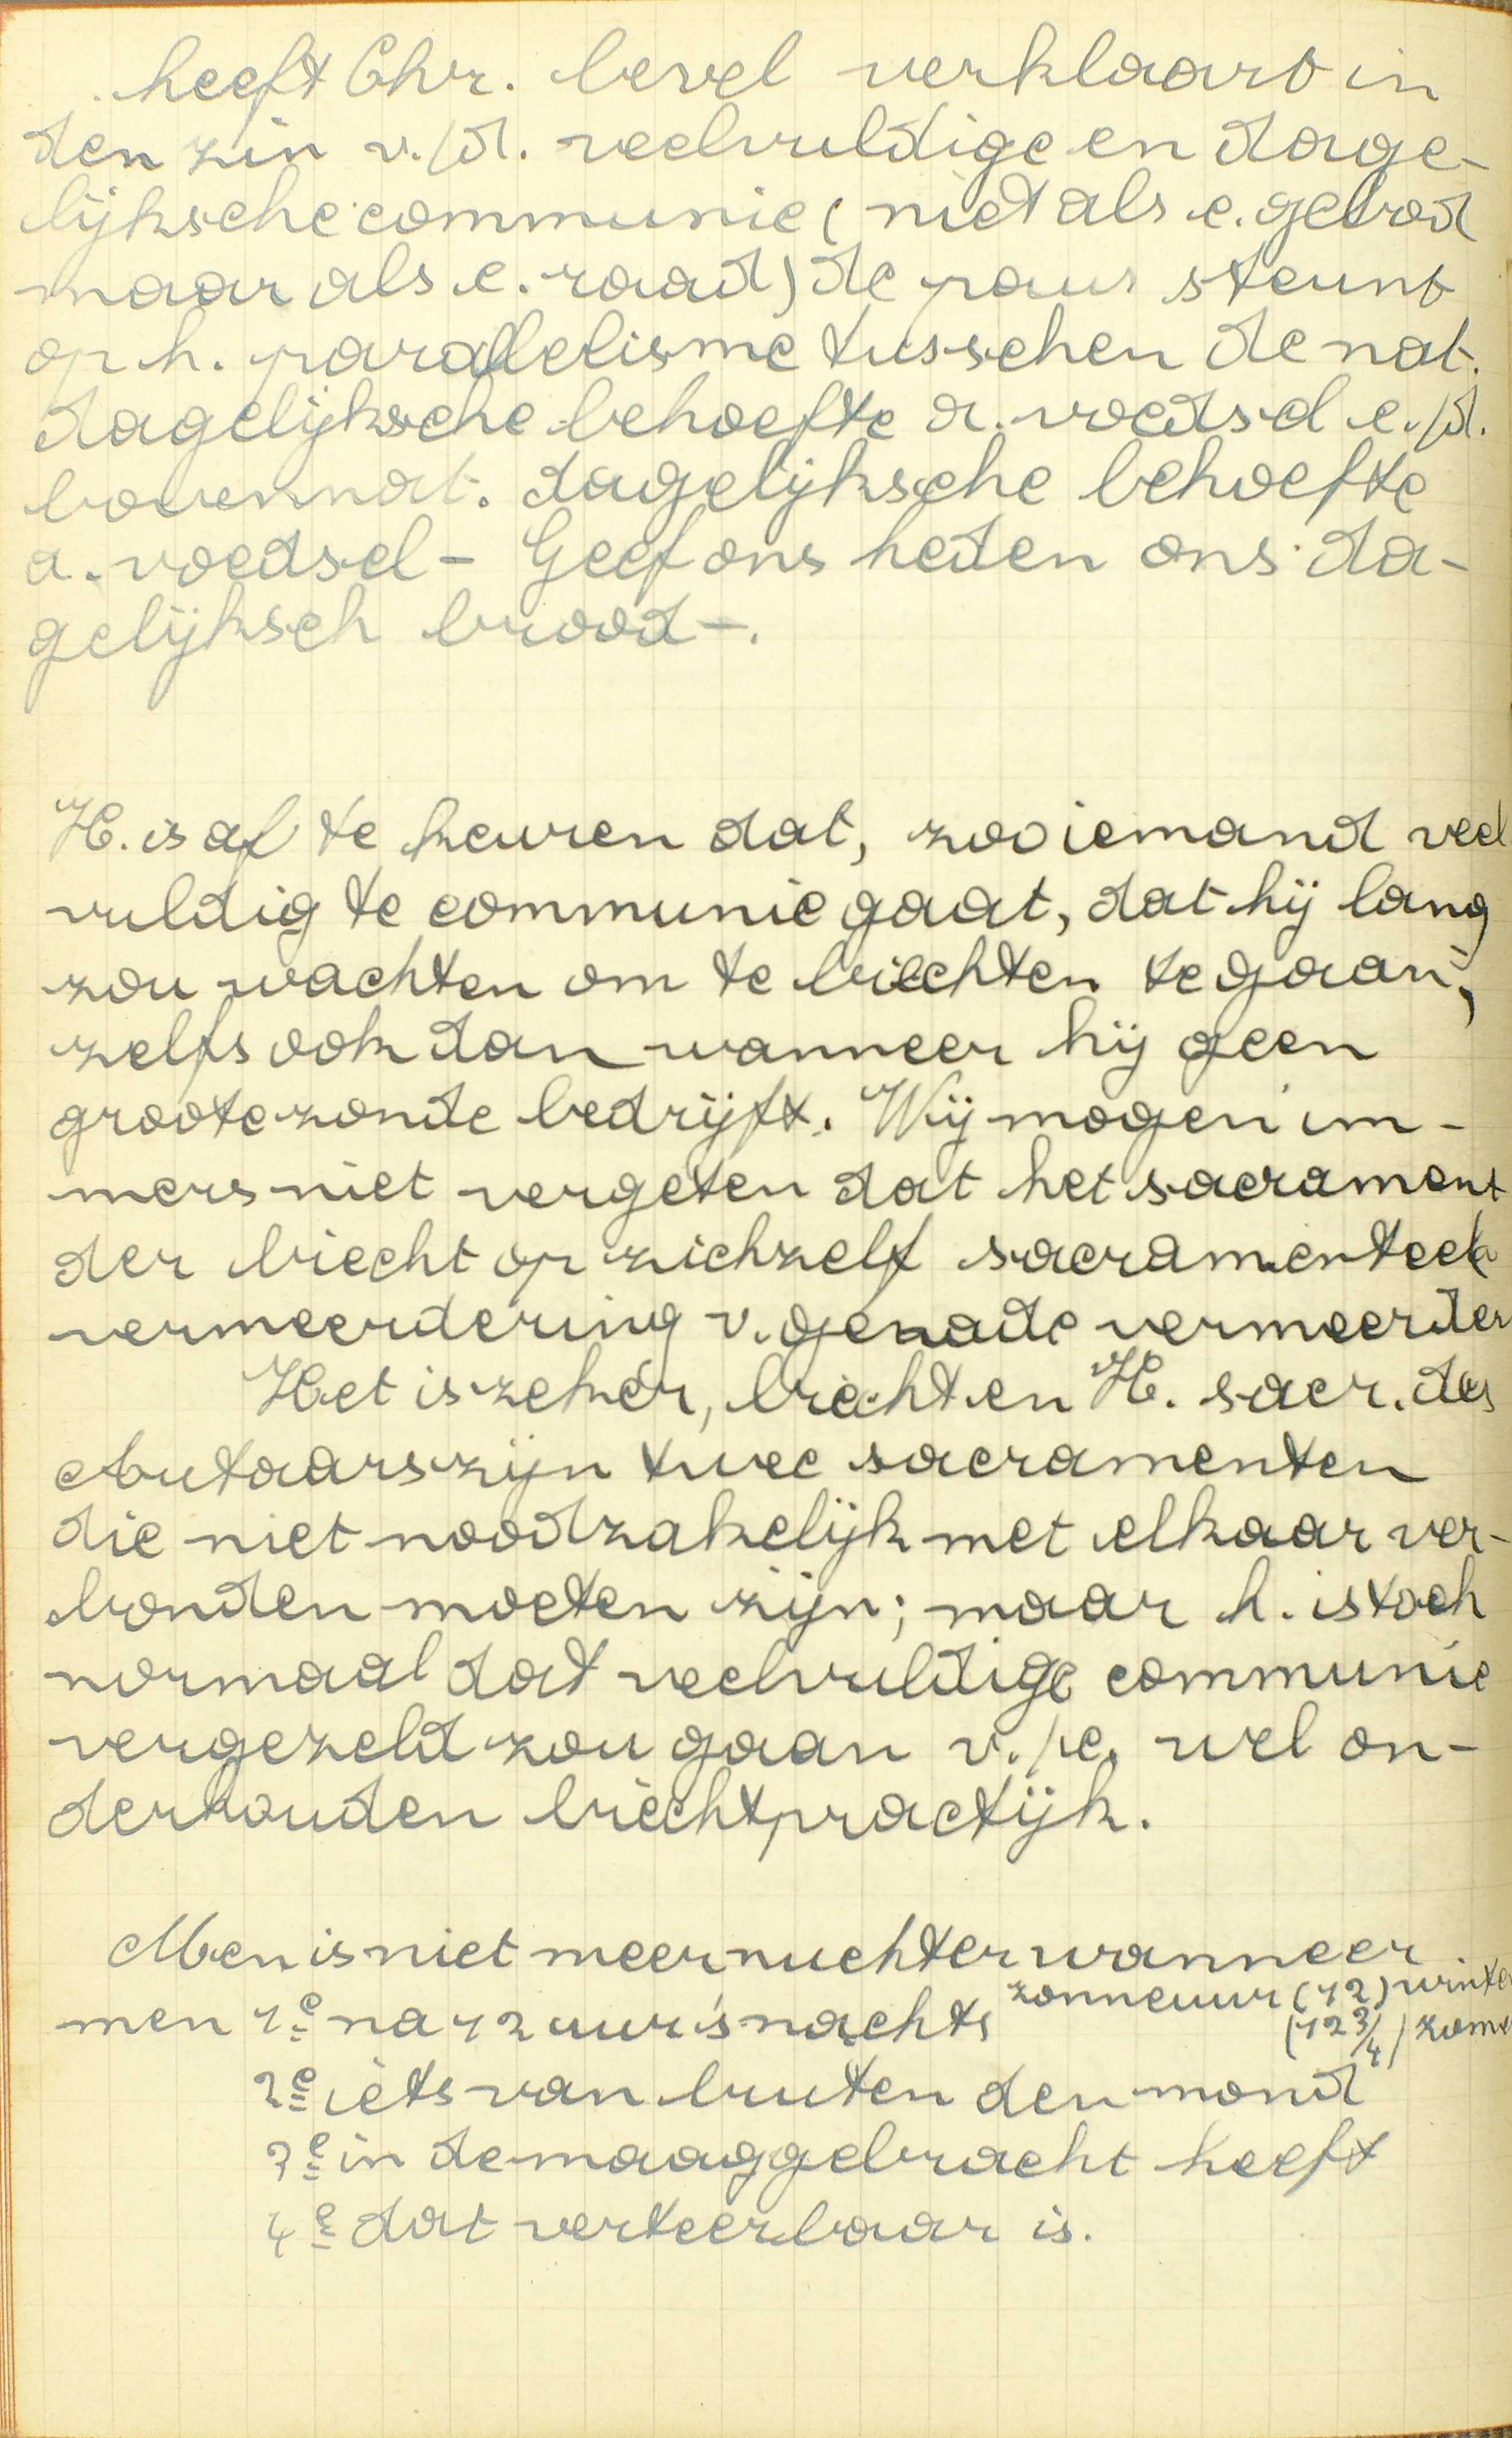 heeft Chr. bevel verklaart in
den zin v./d. veelvuldige en dage-
lijksche communie (niet als e. gebod
maar als e. raad) de paus steunt
op h. parallelisme tusschen de nat.
dagelijksche behoefte a. voedsel e./d.
bovennat. dagelijksche behoefte
a. voedsel - Geef ons heden ons da-
gelijksch brood -.
H. is af te keuren dat, zoo iemand veel
vuldig te communie gaat, dat hij lang
zou wachten om te biechten te gaan,
zelfs ook dan wanneer hij geen
groote zonde bedrijft. Wij mogen im-
mers niet vergeten dat het sacrament
der biecht op zichzelf sacramenteele
vermeerdering v. genade vermeerder
Het is zeker, biecht en H. sacr. des
Autaars zijn twee sacramenten
die niet noodzakelijk met elkaar ver-
bonden moeten zijn; maar h. is toch
normaal dat veelvuldige communie
vergezeld zou gaan v./e. wel on-
derhouden biechtpractijk.
Men is niet meer nuchter wanneer
men 1e na 12 uur 's nachts zonneuur (12) winter
(12 3/4) zome
2e iets van buiten den mond
3e in de maag gebracht heeft
4e dat verteerbaar is.